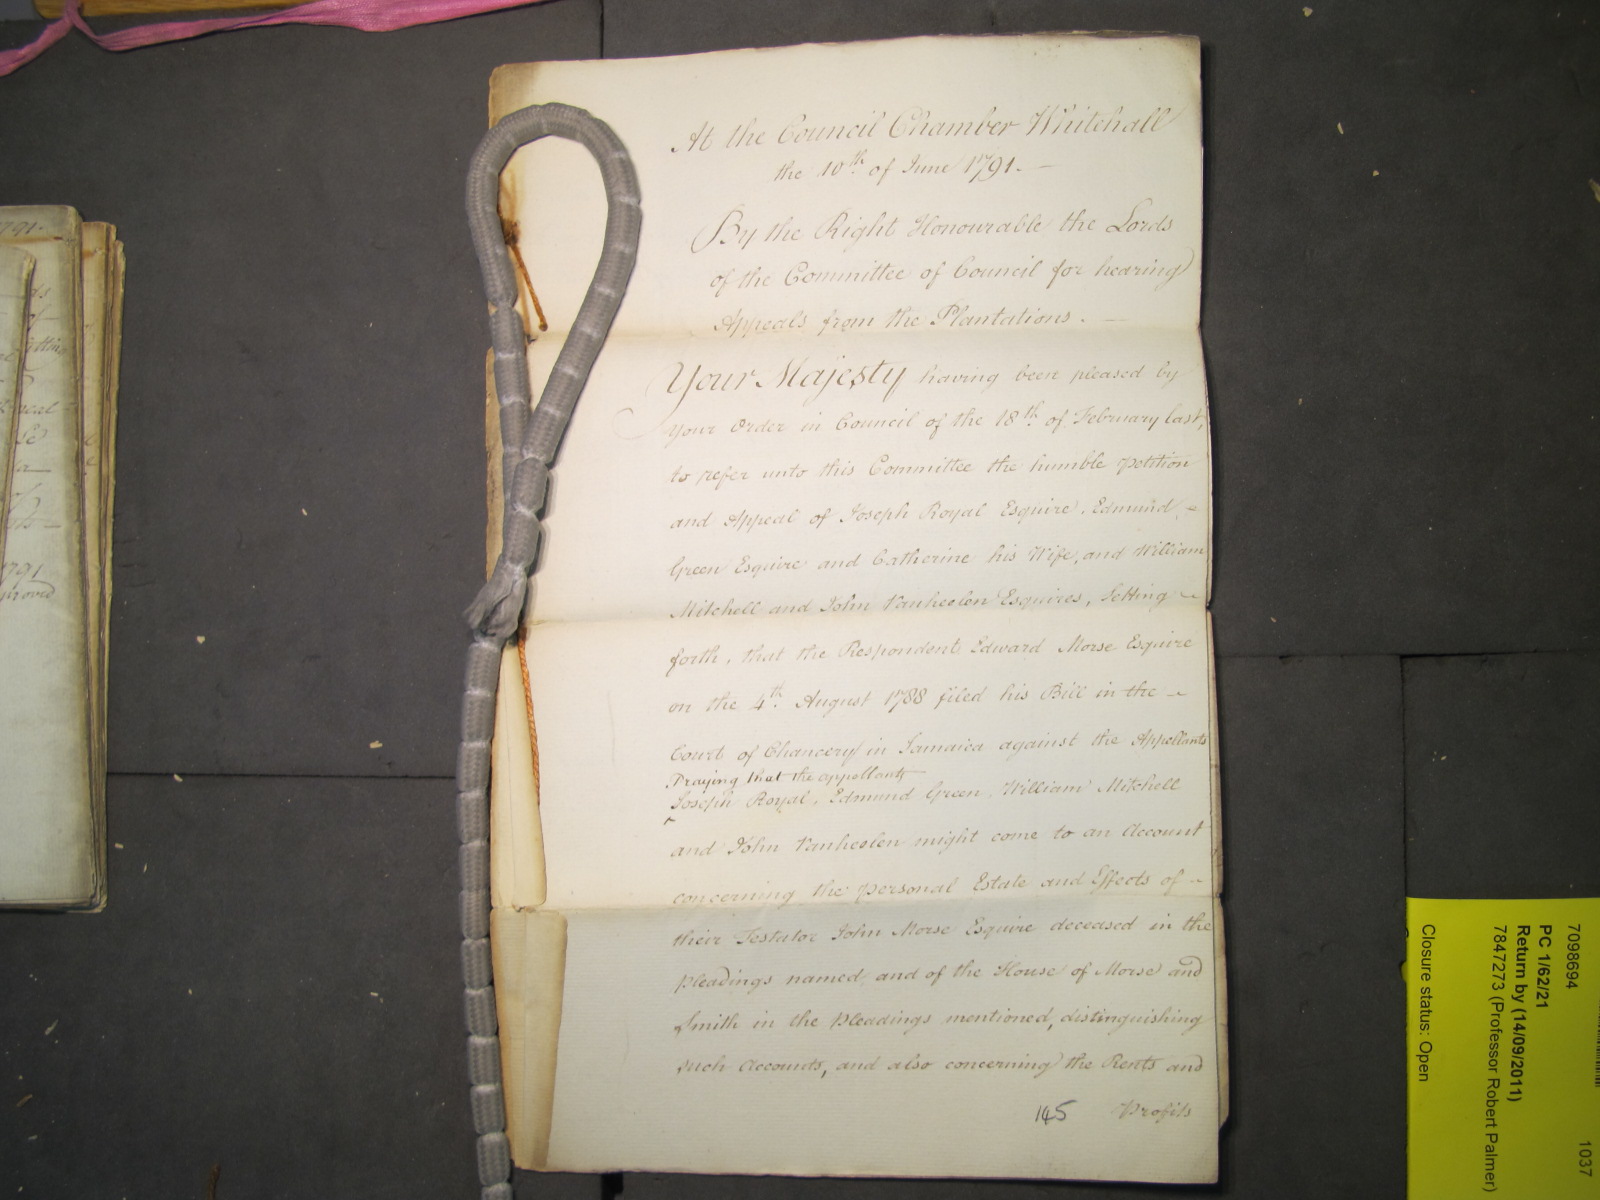 At the Council Chamber Whitehall
the 10th of June 1791. —
By the Right Honourable the Lords
of the Committee of Council for hearing
Appeals from the Plantations. —
Your Majesty having been pleased by
Your Order in Council of the 18th of February last,
to refer unto this Committee the humble petition
and Appeal of Joseph Royal Esquire, Edmund
Green Esquire and Catherine his Wife, and William
Mitchell and John Vanheelen Esquires, Setting
forth, that the Respondent Edward Morse Esquire
on the 4th August 1788 filed his Bill in the
Court of Chancery in Jamaica against the Appellants
Praying that the appellants
Joseph Royal, Edmund Green, William Mitchell
and John Vanheelen might come to an Account
concerning the personal Estate and Effects of
their Testator John Morse Esquire deceased in the
pleadings named, and of the House of Morse and
Smith in the pleadings mentioned, distinguishing
such Accounts, and also concerning the Rents and
145 Profits
1791
1791
7098694
PC 1/62/21
Return by (14/09/2011)
7847273 (Professor Robert Palmer)
Closure status: Open
1037